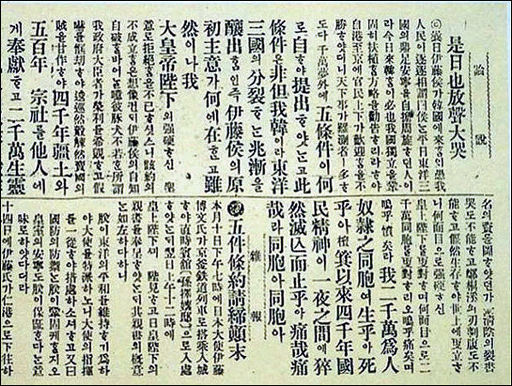 論說
是日也放聲大哭
◎曩日伊藤侯가韓國에來홈애愚我
人民이逐逐相謂曰侯ᄂᆞᆫ平日東洋三
國의鼎足安寧을自擔周旋ᄒᆞ던人이
라今日來韓홈이必也我國獨立을鞏
固히扶植ᄒᆞᆯ方略을勸告ᄒᆞ리라ᄒᆞ야
自港至京에官民上下가歡迎홈을不
勝ᄒᆞ얏더니天下事가難測者ㅣ多ᄒᆞ
도다千萬夢外에五條件이何
로自ᄒᆞ야提出ᄒᆞ얏ᄂᆞᆫ고此
條件은非但我韓이라東洋
三國의分裂ᄒᆞᄂᆞᆫ兆漸을
釀出홈인즉伊藤侯의原
初主意가何에在ᄒᆞᆫ고雖
然이나我
大皇帝陛下의强硬ᄒᆞ신聖
意로拒絶홈을不已ᄒᆞ셧스니該約의
不成立홈은想像컨ᄃᆡ伊藤侯의自知
自破ᄒᆞᆯ바어ᄂᆞᆯ噫彼豚犬不若ᄒᆞᆫ所謂
我政府大臣者가榮利를希覬ᄒᆞ고假
嚇를恇劫ᄒᆞ야逡巡然觳觫然賣國의
賊을甘作ᄒᆞ야四千年疆土와
五百年宗社를他人에
게奉獻ᄒᆞ고二千萬生靈
名의責을圖ᄒᆞ얏던가金淸陰의裂書
哭도不能ᄒᆞ고鄭桐溪의刃剚腹도不
能ᄒᆞ고偃然生存ᄒᆞ야世上에更立ᄒᆞ
니何面目으로强硬ᄒᆞ신
皇上陛下를更對ᄒᆞ며何面目으로二
千萬同胞를更對ᄒᆞ리오嗚乎痛矣라
嗚乎憤矣라我二千萬爲人
奴隷之同胞여生乎아死
乎아檀箕以來四千年國
民精神이一夜之間에猝
然滅亡而止乎아痛哉痛
哉라同胞아同胞아
雜報
五件條約請締顚末
本月十日下午七時에日本大使伊藤
博文氏가京釜鐵道列車로搭乘入城
ᄒᆞ야直時賓館에入處
ᄒᆞ얏ᄂᆞᆫᄃᆡ翌日上午十二時에
皇上陛下ᄭᅴ陛見ᄒᆞ고日皇陛下의
親書를奉呈ᄒᆞ얏ᄂᆞᆫᄃᆡ其親書의槪意
ᄂᆞᆫ如左ᄒᆞ다ᄒᆞ니
朕이東洋의平和를維持ᄒᆞ기爲ᄒᆞ
야大使를特派ᄒᆞ노니大使의指揮
를一從ᄒᆞ야措處ᄒᆞ소셔ᄒᆞ고又曰
國防의防禦ᄂᆞᆫ朕이鞏固케ᄒᆞᆯ지오
皇室의安寧도朕이保證ᄒᆞᆫ다ᄂᆞᆫ
味로ᄒᆞ얏다더라
十四日에伊藤氏가仁港으로下往ᄒᆞ